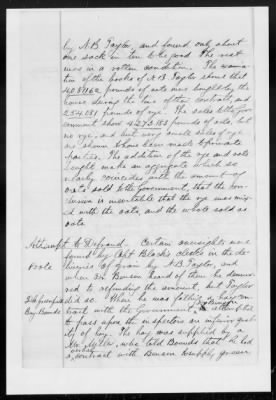 by N.B. Taylor, and found only about
one sack in ten to be good. The rest
was in a rotten condition. The examina-
tion of the books of N.B. Taylor shows that
pounds of oats were bought by the
house during the time of the contract, and
254.081 pounds of rye. The sales to the gov-
ernment show 4.273.185 pounds of oats, but
no rye, and but very small sales of rye
are shown to have been made to private
parties. The addition of the rye and oats
bought make an aggregate which so
nearly coincides with the amount of
oats sold to the government, that the con-
clusion is inevitable that the rye was mix-
ed with the oats, and the whole sold as
oats.
Attempt to Defraud. Certain overweights were
found by Capt Black's clerks in the de-
liveries of grain by N.B. Taylor, and
Poole
when Mr Benson heard of them he demur-
red to refunding the amount, but Taylor
did so. When he was filling a hay con-
Bonds
tract with the Government, attempted
to pass upon the inspectors an inferior qual-
ity of hay. The hay was supplied by a
Mr. who told Bounds that he had
a contract with Benson to supply